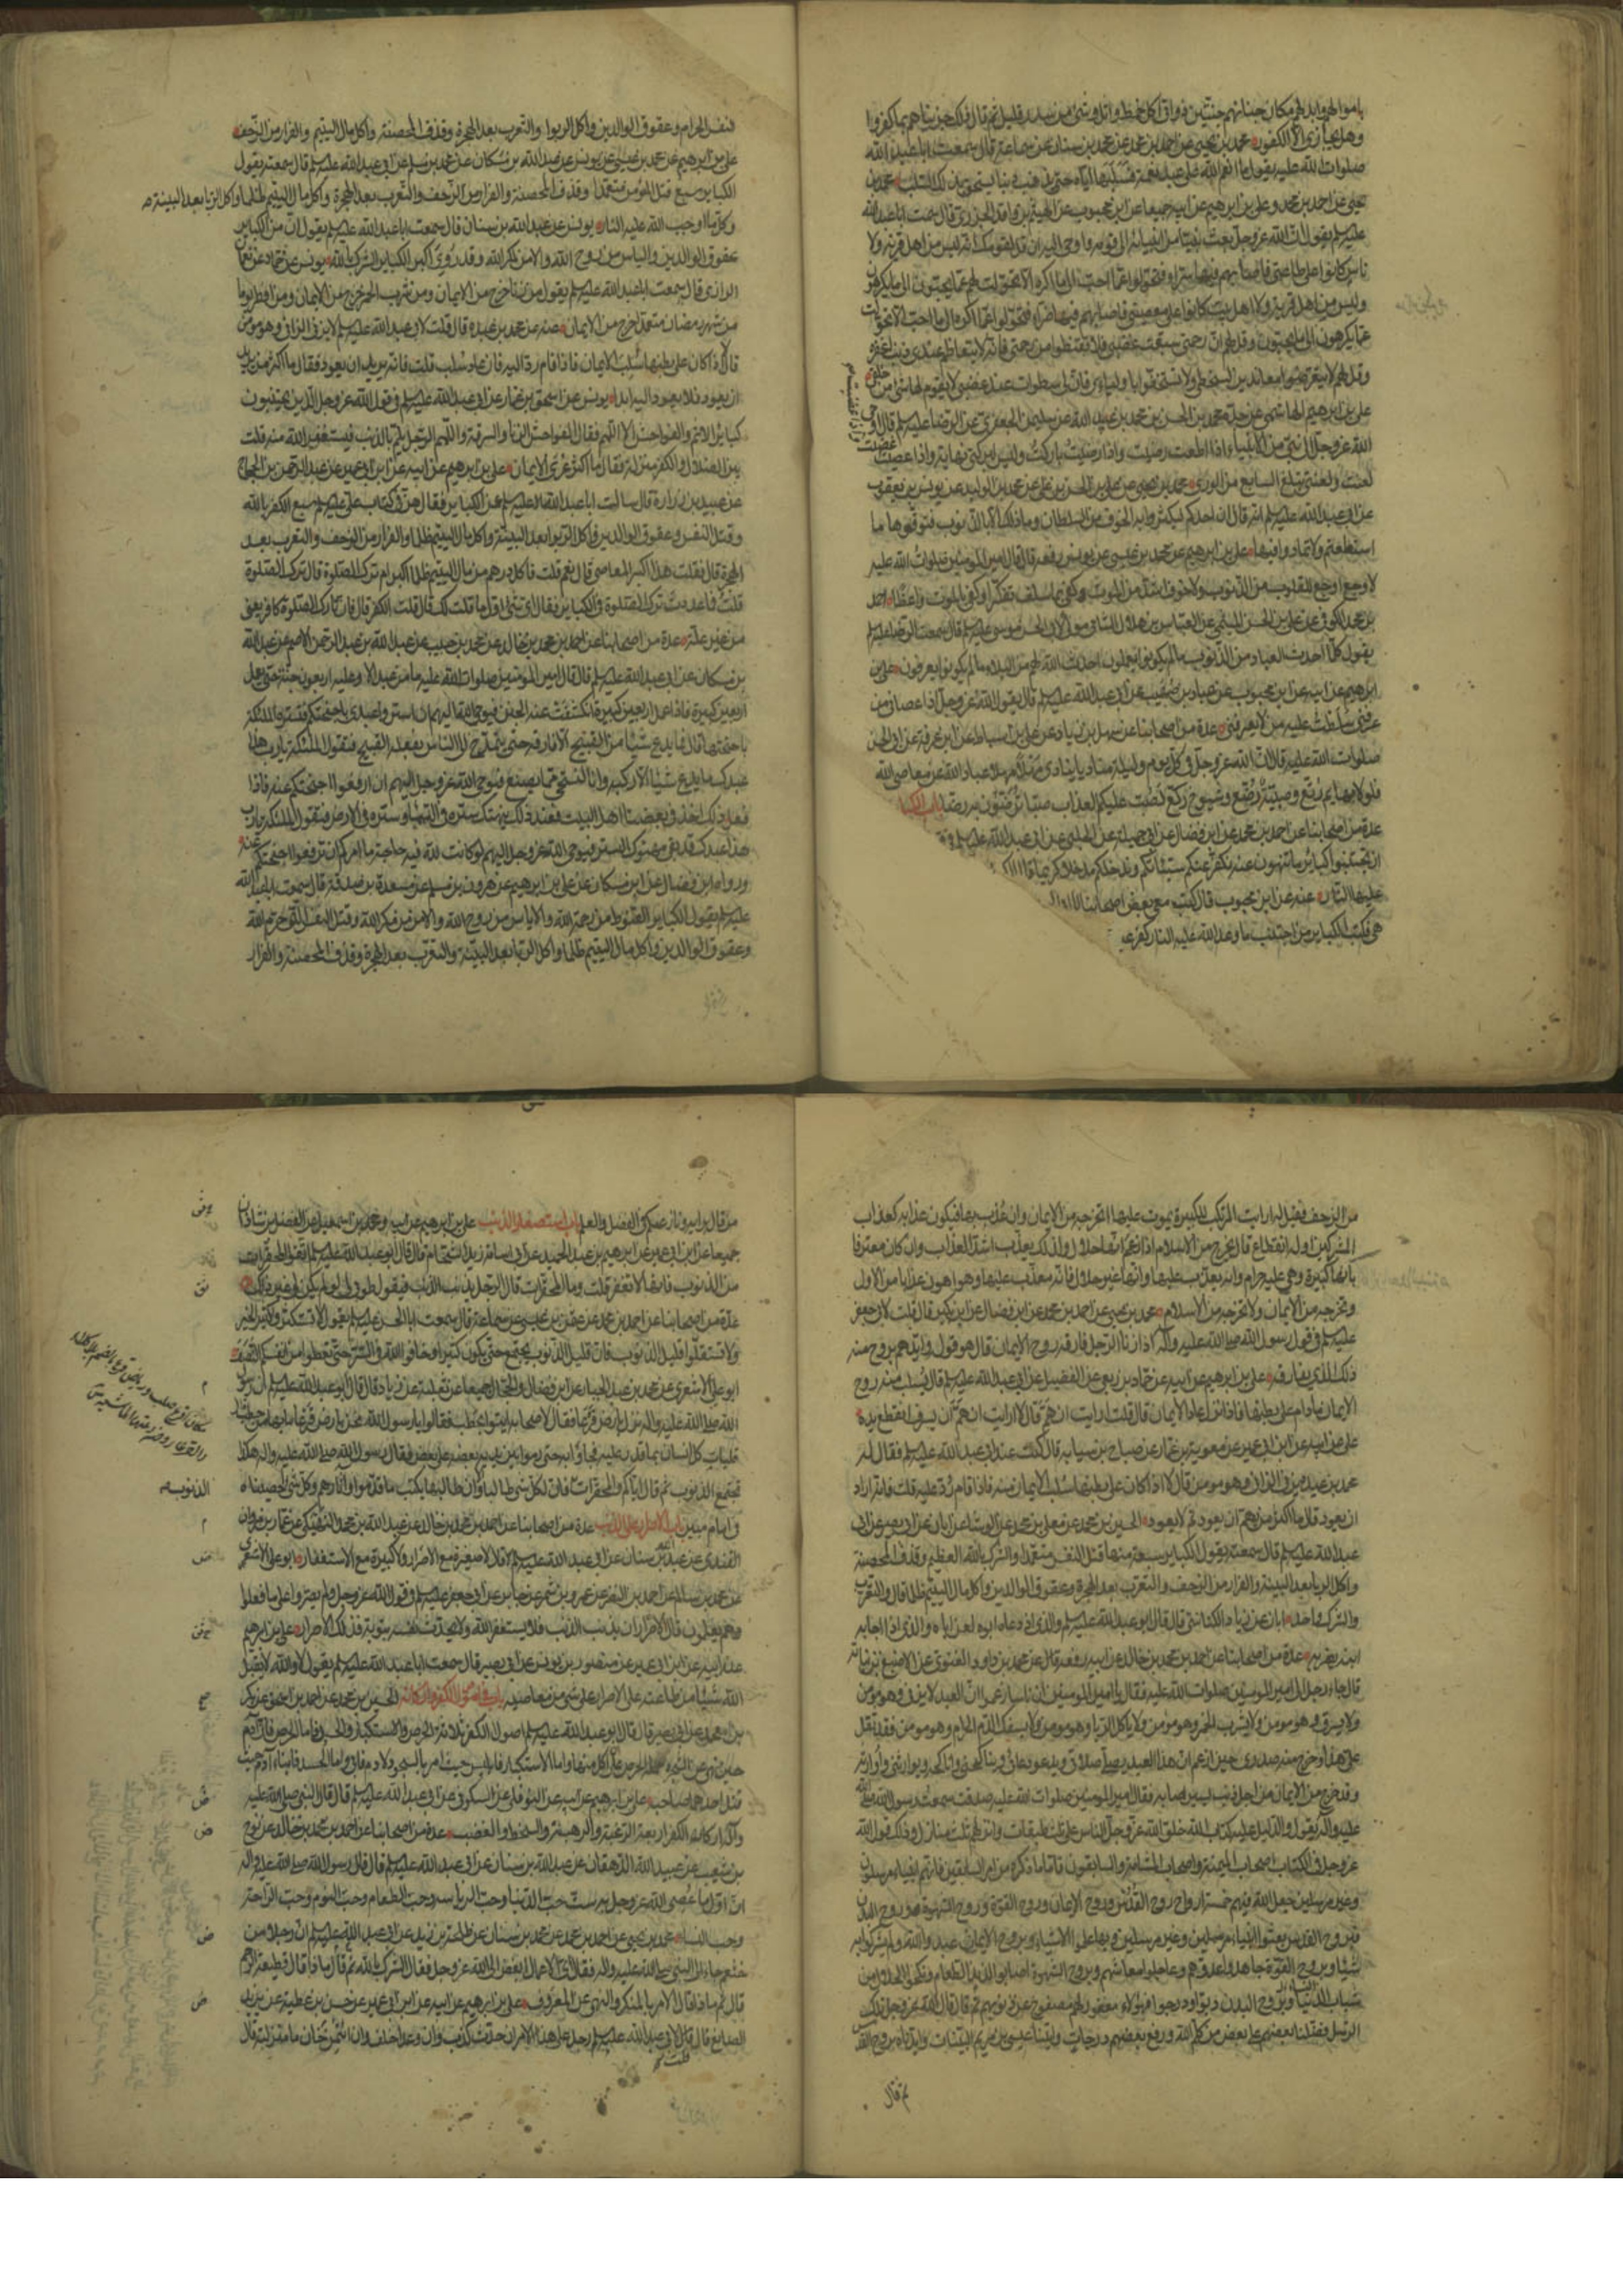 باموالهم وابدلهم مكان جناتهم جنتين ذواتي اكل خمط واثل وشئ من سدر قليل ثم قال ذلك جزيناهم بما كفروا
وهل نجازي الا الكفور محمد بن يحيى عن احمد بن محمد عن محمد بن سنان عن سماعة قال سمعت ابا عبد الله
صلوات الله عليه يقول ما انعم الله على عبد نعمة فسلبها اياه حتى يذنب ذنبا يستحق بذلك السلب محمد بن
يحيى عن احمد بن محمد وعلي بن ابرهيم عن ابيه جميعا عن ابن محبوب عن الهيثم بن واقد الجزري قال سمعت ابا عبد الله
عليه السلم يقول ان الله عز وجل بعث نبيا من انبيائه الى قومه واوحى اليه ان قل لقومك انه ليس من اهل قرية ولا
ناس كانوا على طاعتي فاصابهم فيها سراء فتحولوا عما احب الى ما اكره الا تحولت لهم عما يحبون الى ما يكرهون
وليس من اهل قرية ولا اهل بيت كانوا على معصيتي فاصابهم فيها ضراء فتحولوا عما اكره الى ما احب الا تحولت
عما يكرهون الى ما يحبون وقل لهم ان رحمتي سبقت غضبي فلا تقنطوا من رحمتي فانه لا يتعاظم عندي ذنب اغفره
وقل لهم لا يتعرضوا معاندين لسخطي ولا يستخفوا باوليائي فان لي سطوات عند غضبي لا يقوم لها شئ من خلقي
علي بن ابرهيم الهاشمي عن جده محمد بن الحسن بن محمد بن عبيد الله عن سليمن الجعفري عن الرضا عليه السلم قال اوحى
الله عز وجل الى نبي من الانبياء اذا اطعت رضيت واذا رضيت باركت وليس لبركتي نهاية واذا عصيت
لعنت ولعنتي تبلغ السابع من الورى محمد بن يحيى عن علي بن الحسن بن علي عن محمد بن الوليد عن يونس بن يعقوب
عن ابي عبد الله عليه السلم انه قال ان احدكم ليكثر به الخوف من السلطان وما ذلك الا بالذنوب فتوقوها ما
استطعتم ولا تمادوا فيها علي بن ابرهيم عن محمد بن عيسى عن يونس رفعه قال قال امير المؤمنين صلوات الله عليه
لا وجع اوجع للقلوب من الذنوب ولا خوف اشد من الموت وكفى بما سلف تفكرا وكفى بالموت واعظا احمد
بن محمد الكوفي عن علي بن الحسن الميثمي عن العباس بن هلال الشامي مولى لابي الحسن موسى عليه السلم قال سمعت الرضا عليه السلم
يقول كلما احدث العباد من الذنوب ما لم يكونوا يعملون احدث الله لهم من البلاء ما لم يكونوا يعرفون علي بن
ابرهيم عن ابيه عن ابن محبوب عن عباد بن صهيب عن ابي عبد الله عليه السلم قال يقول الله عز وجل اذا عصاني من
عرفني سلطت عليه من لا يعرفني عدة من اصحابنا عن سهل بن زياد عن علي بن اسباط عن ابن عرفة عن ابي الحسن
صلوات الله عليه قال ان لله عز وجل في كل يوم وليلة مناديا ينادي مهلا مهلا عباد الله عن معاصي الله
فلولا بهايم رتع وصبية رضع وشيوخ ركع لصب عليكم العذاب صبا ترضون به رضا باب الكبا
عدة من اصحابنا عن احمد بن محمد عن ابن فضال عن ابي جميلة عن الحلبي عن ابي عبد الله عليه السلم في
ان تجتنبوا كبائر ما تنهون عنه نكفر عنكم سيئاتكم وندخلكم مدخلا كريما قا
عليها النار عنه عن ابن محبوب قال كتب معي بعض اصحابنا
هي فكتب الكبائر من اجتنب ما وعد الله عليه النار كفر عن
النفس الحرام وعقوق الوالدين واكل الربوا والتعرب بعد الهجرة وقذف المحصنة واكل مال اليتيم والفرار من الزحف
علي بن ابرهيم عن محمد بن عيسى عن يونس عن عبد الله بن مسكان عن محمد بن مسلم عن ابي عبد الله عليه السلم قال سمعته يقول
الكبائر سبع قتل المؤمن متعمدا وقذف المحصنة والفرار من الزحف والتعرب بعد الهجرة واكل مال اليتيم ظلما واكل الربا بعد البينة
وكل ما اوجب الله عليه النار يونس عن عبد الله بن سنان قال سمعت ابا عبد الله عليه السلم يقول ان من الكبائر
عقوق الوالدين والياس من روح الله والامن لمكر الله وقد روي اكبر الكبائر الشرك بالله يونس عن حماد عن نعمان
الرازي قال سمعت ابا عبد الله عليه السلم يقول من زنا خرج من الايمان ومن شرب الخمر خرج من الايمان ومن افطر يوما
من شهر رمضان متعمدا خرج من الايمان عنه عن محمد بن عبده قال قلت لابي عبد الله عليه السلم لا يزني الزاني وهو مؤمن
قال لا اذا كان على بطنها سلب الايمان فاذا قام رد اليه فان عاد سلب قلت فانه يريد ان يعود فقال ما اكثر من يريد
ان يعود فلا يعود اليه ابدا يونس عن اسحق بن عمار عن ابي عبد الله عليه السلم في قول الله عز وجل الذين يجتنبون
كبائر الاثم والفواحش الا اللمم فقال الفواحش الزنا والسرقة واللمم الرجل يلم بالذنب فيستغفر الله منه قلت
بين الضلال والكفر منزلة فقال ما اكثر عرى الايمان علي بن ابرهيم عن ابيه عن ابن ابي عمير عن عبد الرحمن بن الحجاج
عن عبيد بن زرارة قال سالت ابا عبد الله عليه السلم عن الكبائر فقال هن في كتاب علي عليه السلم سبع الكفر بالله
وقتل النفس وعقوق الوالدين واكل الربوا بعد البينة واكل مال اليتيم ظلما والفرار من الزحف والتعرب بعد
الهجرة قال فقلت هذا اكبر المعاصي قال نعم قلت فاكل درهم من مال اليتيم ظلما اكبر ام ترك الصلوة قال ترك الصلوة
قلت فما عددت ترك الصلوة في الكبائر فقال اي شئ اول ما قلت لك قال قلت الكفر قال فان تارك الصلوة كافر يعني
من غير علة عدة من اصحابنا عن احمد بن محمد بن خالد عن محمد بن حبيب عن عبد الله بن عبد الرحمن الاصم عن عبد الله
بن مسكان عن ابي عبد الله عليه السلم قال قال امير المؤمنين صلوات الله عليه ما من عبد الا وعليه اربعون جنة حتى يعمل
اربعين كبيرة فاذا عمل اربعين كبيرة انكشفت عنه الجنن فيوحي الله اليهم ان استروا عبدي باجنحتكم فتستره الملئكة
باجنحتها قال فما يدع شيئا من القبيح الا قارفه حتى يمتدح الى الناس بفعله القبيح فتقول الملئكة يا رب هذا
عبدك ما يدع شيئا الا ركبه وانا لنستحي مما يصنع فيوحي الله عز وجل اليهم ان ارفعوا اجنحتكم عنه فاذا
فعل ذلك اخذ في بغضنا اهل البيت فعند ذلك ينهتك ستره في السماء وستره في الارض فتقول الملئكة يا رب
هذا عبدك قد بقي مهتوك الستر فيوحي الله عز وجل اليهم لو كانت لله فيه حاجة ما امركم ان ترفعوا اجنحتكم عنه
ورواه ابن فضال عن ابن مسكان علي بن ابرهيم عن هرون بن مسلم عن مسعدة بن صدقة قال سمعت ابا عبد الله
عليه السلم يقول الكبائر القنوط من رحمة الله والاياس من روح الله والامن من مكر الله وقتل النفس التي حرم الله
وعقوق الوالدين واكل مال اليتيم ظلما واكل الربا بعد البينة والتعرب بعد الهجرة وقذف المحصنة والفرار
من الزحف فقيل له ارايت المرتكب للكبيرة يموت عليها اتخرجه من الايمان وان عذب بها فيكون عذابه كعذاب
المشركين او له انقطاع قال يخرج من الاسلام اذا زعم انها حلال ولذلك يعذب اشد العذاب وان كان معترفا
بانها كبيرة وهي عليه حرام وانه يعذب عليها وانها غير حلال فانه معذب عليها وهو اهون عذابا من الاول
وتخرجه من الايمان ولا تخرجه من الاسلام محمد بن يحيى عن احمد بن محمد عن ابن فضال عن ابن بكير قال قلت لابي جعفر
عليه السلم في قول رسول الله صلى الله عليه وآله اذا زنا الرجل فارقه روح الايمان قال هو قوله وايدهم بروح منه
ذلك الذي يفارقه علي بن ابرهيم عن ابيه عن حماد عن ربعي عن الفضيل عن ابي عبد الله عليه السلم قال يسلب منه روح
الايمان ما دام على بطنها فاذا نزل عاد الايمان قال قلت ارايت ان هم قال لا ارايت ان هم ان يسرق اتقطع يده
علي عن ابيه عن ابن ابي عمير عن معوية بن عمار عن صباح بن سيابة قال كنت عند ابي عبد الله عليه السلم فقال له
محمد بن عبده يزني الزاني وهو مؤمن قال لا اذا كان على بطنها سلب الايمان منه فاذا قام رد عليه قلت فانه اراد
ان يعود قال ما اكثر من يهم ان يعود ثم لا يعود الحسين بن محمد عن معلى بن محمد عن الوشا عن ابان عن ابي بصير عن ابي
عبد الله عليه السلم قال سمعته يقول الكبائر سبعة منها قتل النفس متعمدا والشرك بالله العظيم وقذف المحصنة
واكل الربا بعد البينة والفرار من الزحف والتعرب بعد الهجرة وعقوق الوالدين واكل مال اليتيم ظلما قال والتعرب
والشرك واحد ابان عن زياد الكناسي قال قال ابو عبد الله عليه السلم والذي اذا دعاه ابوه لعن اباه والذي اذا اجابه
ابنه يضربه عدة من اصحابنا عن احمد بن محمد بن خالد عن ابيه رفعه قال عن محمد بن داود الغنوي عن الاصبغ بن نباتة
قال جاء رجل الى امير المؤمنين صلوات الله عليه فقال يا امير المؤمنين ان ناسا زعموا ان العبد لا يزني وهو مؤمن
ولا يسرق وهو مؤمن ولا يشرب الخمر وهو مؤمن ولا ياكل الربا وهو مؤمن ولا يسفك الدم الحرام وهو مؤمن فقد ثقل
علي هذا وحرج منه صدري حين ازعم ان هذا العبد يصلي صلاتي ويدعو دعائي ويناكحني واناكحه ويوارثني واوارثه
وقد خرج من الايمان من اجل ذنب يسير اصابه فقال امير المؤمنين صلوات الله عليه صدقت سمعت رسول الله صلى الله
عليه واله يقول والدليل عليه كتاب الله خلق الله عز وجل الناس على ثلث طبقات وانزلهم ثلث منازل وذلك قول الله
عز وجل في الكتاب اصحاب الميمنة واصحاب المشامة والسابقون فاما ما ذكره من امر السابقين فانهم انبياء مرسلون
وغير مرسلين جعل الله فيهم خمسة ارواح روح القدس وروح الايمان وروح القوة وروح الشهوة وروح البدن
فبروح القدس بعثوا انبياء مرسلين وغير مرسلين وبها علموا الاشياء وبروح الايمان عبدوا الله ولم يشركوا به
شيئا وبروح القوة جاهدوا عدوهم وعالجوا معاشهم وبروح الشهوة اصابوا لذيذ الطعام ونكحوا الحلال من
شباب النساء وبروح البدن دبوا ودرجوا فهؤلاء مغفور لهم مصفوح عن ذنوبهم ثم قال قال الله عز وجل تلك
الرسل فضلنا بعضهم على بعض منهم من كلم الله ورفع بعضهم درجات واتينا عيسى بن مريم البينات وايدناه بروح القدس
ثم قال
من قال برايه ونازعكم في الفضل والعلم باب استصغار الذنب علي بن ابرهيم عن ابيه ومحمد بن اسمعيل عن الفضل بن شاذان
جميعا عن ابن ابي عمير عن ابرهيم بن عبد الحميد عن ابي اسامة زيد الشحام قال قال ابو عبد الله عليه السلم اتقوا المحقرات
من الذنوب فانها لا تغفر قلت وما المحقرات قال الرجل يذنب الذنب فيقول طوبى لي لو لم يكن لي غير ذلك
عدة من اصحابنا عن احمد بن محمد عن عثمن بن عيسى عن سماعة قال سمعت ابا الحسن عليه السلم يقول لا تستكثروا كثير الخير
ولا تستقلوا قليل الذنوب فان قليل الذنوب يجتمع حتى يكون كثيرا وخافوا الله في السر حتى تعطوا من انفسكم النصف
ابو علي الاشعري عن محمد بن عبد الجبار عن ابن فضال والحجال جميعا عن ثعلبة عن زياد قال قال ابو عبد الله عليه السلم ان رسول
الله صلى الله عليه واله نزل بارض قرعاء فقال لاصحابه ايتوا بحطب فقالوا يا رسول الله نحن بارض قرعاء ما بها من حطب قال
فليات كل انسان بما قدر عليه فجاؤا به حتى رموا بين يديه بعضه على بعض فقال رسول الله صلى الله عليه واله هكذا
تجتمع الذنوب ثم قال اياكم والمحقرات فان لكل شئ طالبا وان طالبها يكتب ما قدموا واثارهم وكل شئ احصيناه
في امام مبين باب الاصرار على الذنب عدة من اصحابنا عن احمد بن محمد بن خالد عن عبد الله بن محمد النهيكي عن عمار بن مروان
القندي عن عبد الله بن سنان عن ابي عبد الله عليه السلم قال لا صغيرة مع الاصرار ولا كبيرة مع الاستغفار ابو علي الاشعري
عن محمد بن سالم عن احمد بن النضر عن عمرو بن شمر عن جابر عن ابي جعفر عليه السلم في قول الله عز وجل ولم يصروا على ما فعلوا
وهم يعلمون قال الاصرار ان يذنب الذنب فلا يستغفر الله ولا يحدث نفسه بتوبة فذلك الاصرار علي بن ابرهيم
عن ابيه عن ابن ابي عمير عن منصور بن يونس عن ابي بصير قال سمعت ابا عبد الله عليه السلم يقول لا والله لا يقبل
الله شيئا من طاعته على الاصرار على شئ من معاصيه باب في اصول الكفر واركانه الحسين بن محمد عن احمد بن اسحق عن بكر
بن محمد عن ابي بصير قال قال ابو عبد الله عليه السلم اصول الكفر ثلاثة الحرص والاستكبار والحسد فاما الحرص فان آدم
حين نهي عن الشجرة حمله الحرص على ان اكل منها واما الاستكبار فابليس حيث امر بالسجود لادم فابى واما الحسد فابنا آدم حيث
قتل احدهما صاحبه علي بن ابرهيم عن ابيه عن النوفلي عن السكوني عن ابي عبد الله عليه السلم قال قال النبي صلى الله عليه
وآله اركان الكفر اربعة الرغبة والرهبة والسخط والغضب عدة من اصحابنا عن احمد بن محمد بن خالد عن نوح
بن شعيب عن عبيد الله الدهقان عن عبد الله بن سنان عن ابي عبد الله عليه السلم قال قال رسول الله صلى الله عليه واله
ان اول ما عصي الله عز وجل به ست حب الدنيا وحب الرياسة وحب الطعام وحب النوم وحب الراحة
وحب النساء محمد بن يحيى عن احمد بن محمد عن محمد بن سنان عن طلحة بن زيد عن ابي عبد الله عليه السلم ان رجلا من
خثعم جاء الى النبي صلى الله عليه واله فقال اي الاعمال ابغض الى الله عز وجل فقال الشرك بالله قال ثم ماذا قال قطيعة الرحم
قال ثم ماذا قال الامر بالمنكر والنهي عن المعروف علي بن ابرهيم عن ابيه عن ابن ابي عمير عن حسن بن عطية عن يزيد
الصايغ قال قلت لابي عبد الله عليه السلم رجل على هذا الامر ان حدث كذب وان وعد اخلف وان ائتمن خان ما منزلته قال
الذنوب